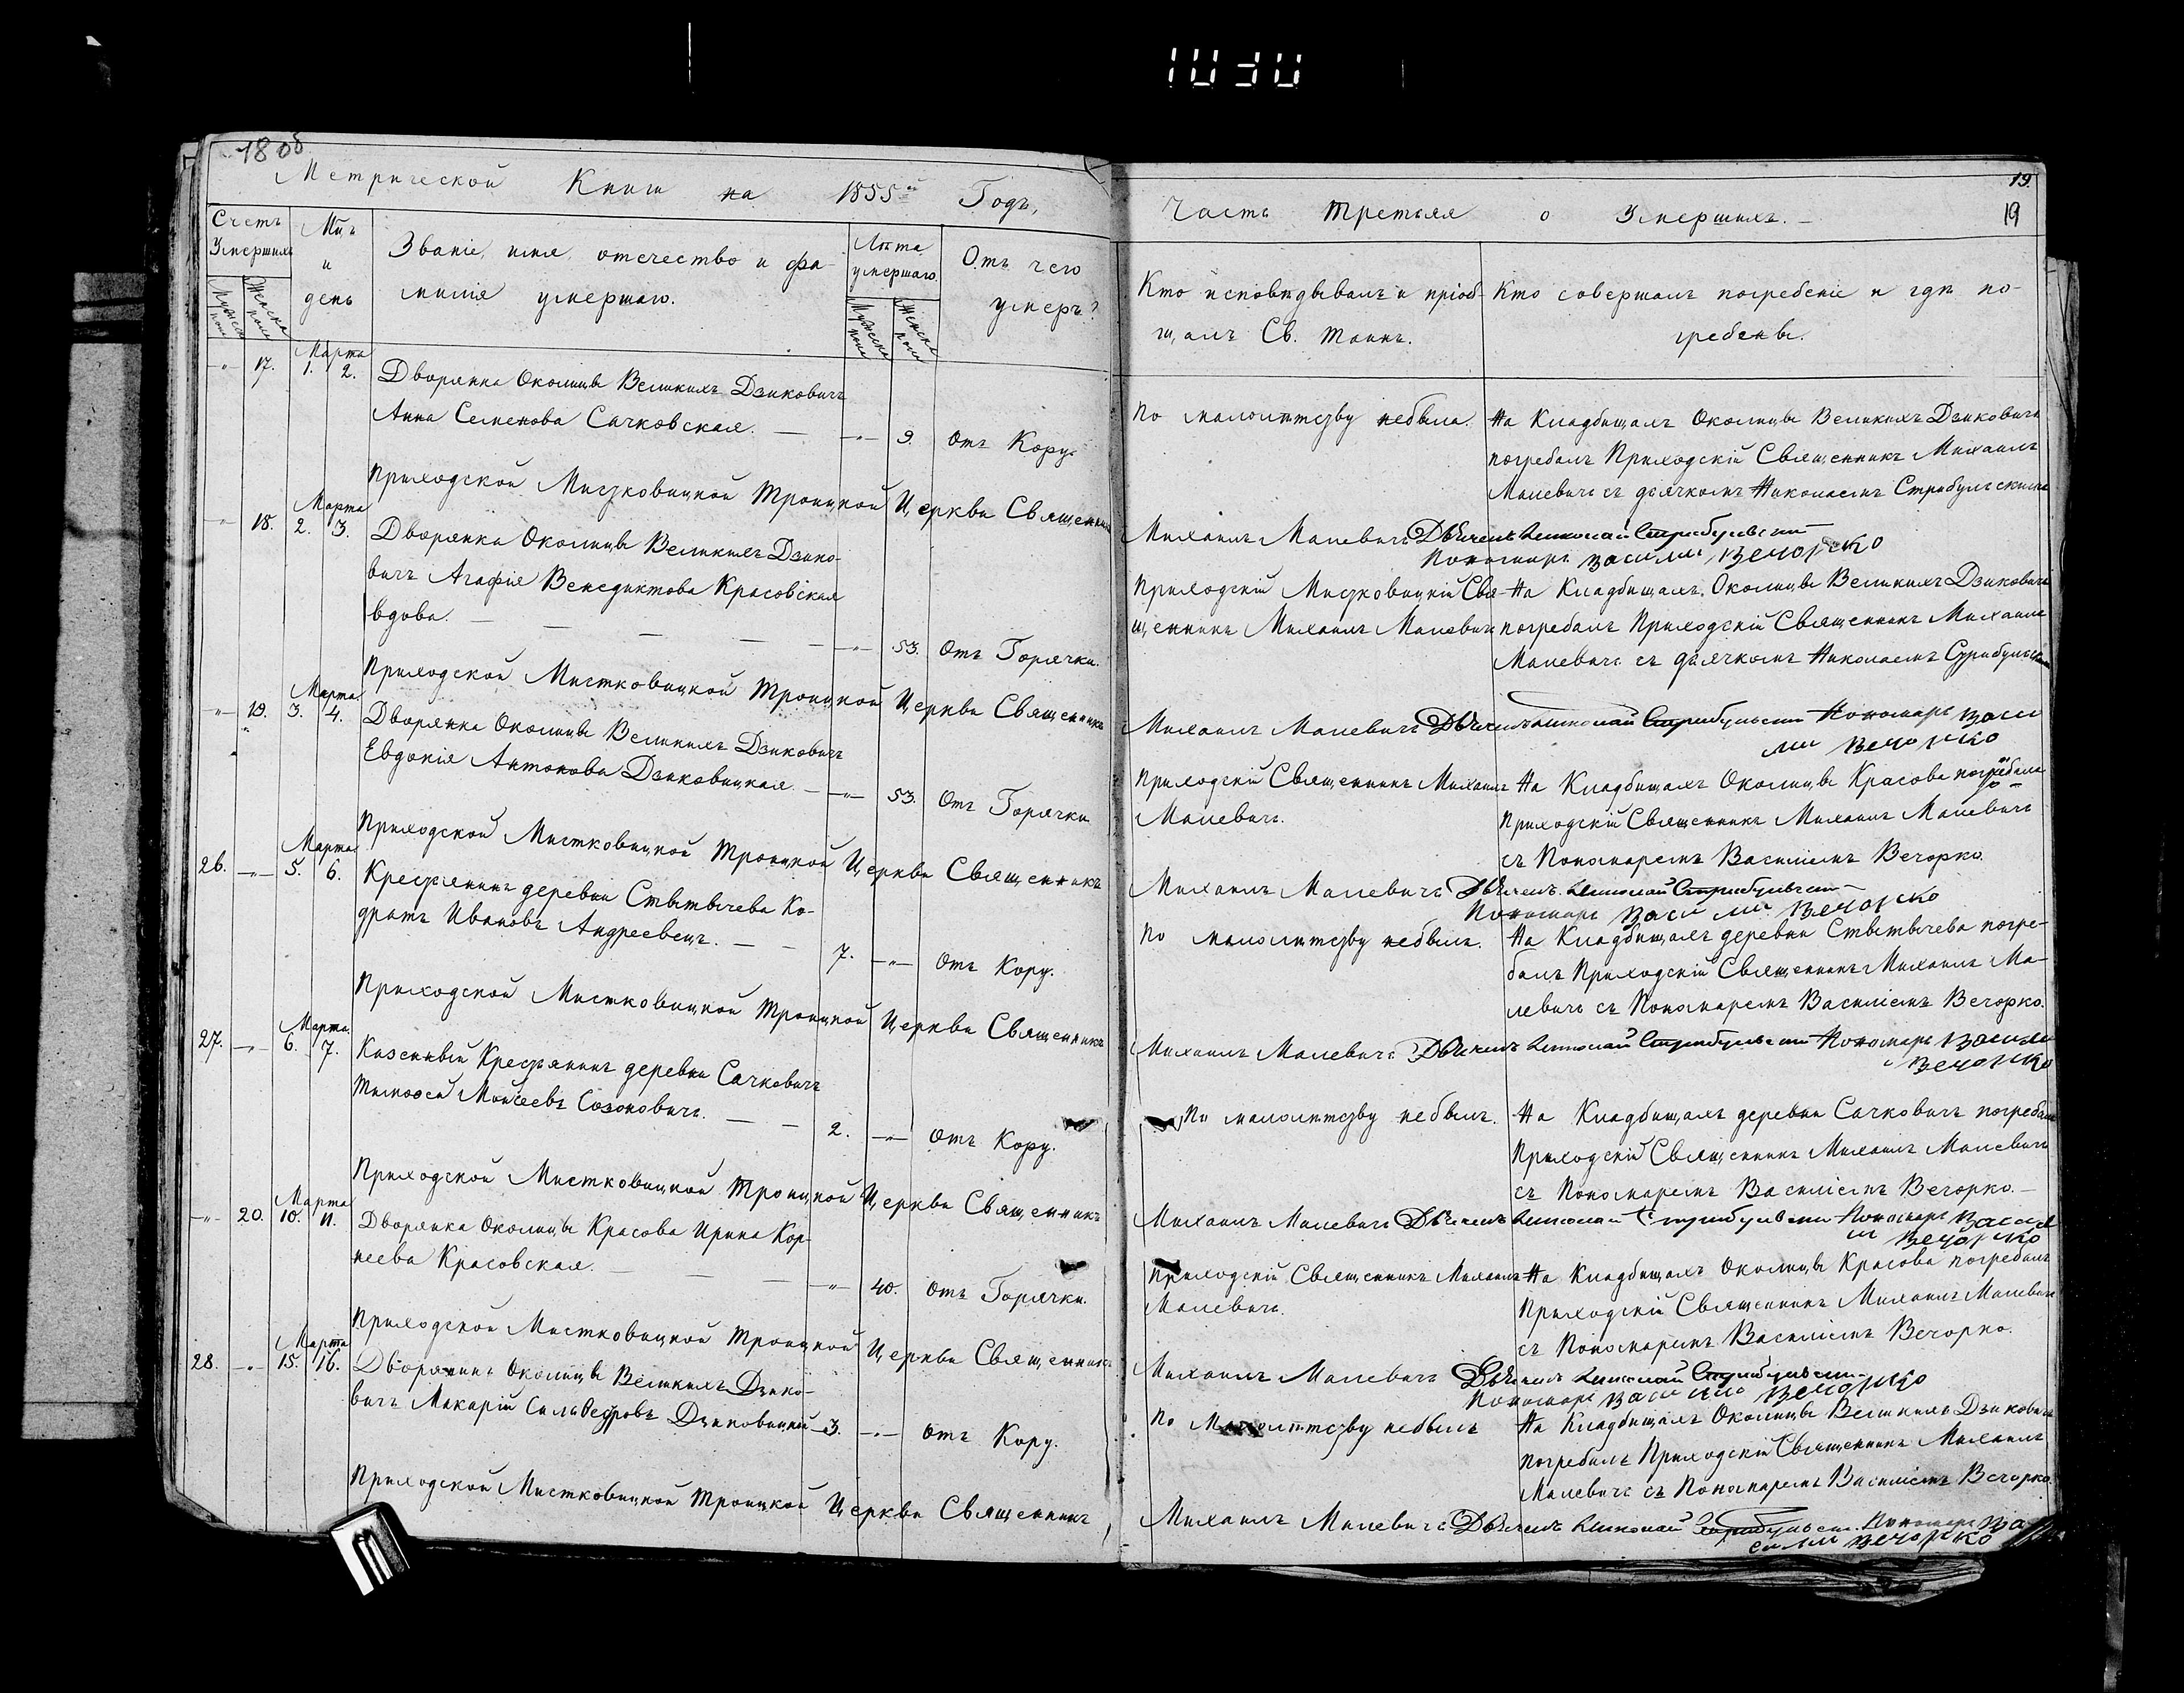 1030
18 об
Метрической Книги на 1855й Годъ,
Счетъ Умершихъ
Мужеска пола
Женска пола
Мцъ и день
Званіе, имя, отечество и фа-
милія умершаго.
Лѣта умершаго.
Мужеска пола
Женска пола
Отъ чего
умеръ?
Марта
-"- 17. 1. 2. Дворянка Околицы Великихъ Дзиковичъ
Анна Семенова Сачковская. — -"- 9. Отъ Кору.
Приходской Мистковицкой Троицкой Церкви Священникъ
Марта
-"- 18. 2. 3. Дворянка Околицы Великихъ Дзико-
вичъ Агафія Венедиктова Красовская
вдова. — -"- 53. Отъ Горячки.
Приходской Мистковицкой Троицкой Церкви Священникъ
Марта
-"- 19. 3. 4. Дворянка Околицы Великихъ Дзиковичъ
Евдокія Антонова Дзиковицкая. — -"- 53. Отъ Горячки
Приходской Мистковицкой Троицкой Церкви Священникъ
Марта
26. -"- 5. 6. Крестьянинъ деревни Стытычева Ко-
дратъ Ивановъ Андреевецъ. — 7. -"- Отъ Кору.
Приходской Мистковицкой Троицкой Церкви Священникъ
Марта
27. -"- 6. 7. Казенный Крестьянинъ деревни Сачковичъ
Тимоѳей Моисеевъ Созоновичъ. — 2. -"- Отъ Кору.
Приходской Мистковицкой Троицкой Церкви Священникъ
Марта
-"- 20. 10. 11. Дворянка Околицы Красова Ирина Кор-
неева Красовская. — -"- 40. Отъ Горячки.
Приходской Мистковицкой Троицкой Церкви Священникъ
Марта
28. -"- 15. 16. Дворянинъ Околицы Великихъ Дзико-
вичъ Макарій Сильвестровъ Дзиковицкій 3. -"- Отъ Кору.
Приходской Мистковицкой Троицкой Церкви Священникъ
19.
Часть Третьяя о Умершихъ. —
19
Кто исповѣдывалъ и пріоб-
щалъ Св. Таинъ.
Кто совершалъ погребеніе и гдѣ по-
гребены.
По малолѣтству небыла. На Кладбищахъ Околицы Великихъ Дзиковичъ
погребалъ Приходскій Священникъ Михаилъ
Малевичъ съ дьячкомъ Николаемъ Стрибульскимъ
Михаилъ Малевичъ Дьячекъ Николай Стрибульскій
Пономарь Василій Вечорко
Приходскій Мистковицкій Свя- На Кладбищахъ Околицы Великихъ Дзиковичъ
щенникъ Михаилъ Малевичъ погребалъ Приходскій Священникъ Михаилъ
Малевичъ съ дьячкомъ Николаемъ Стрибульскимъ
Михаилъ Малевичъ Дьячекъ Николай Стрибульскій Пономарь Васи
лій Вечорко
Приходскій Священникъ Михаилъ На Кладбищахъ Околицы Красова погребалъ
Малевичъ. Приходскій Священникъ Михаилъ Малевичъ
съ Пономаремъ Василіемъ Вечорко.
Михаилъ Малевичъ Дьячекъ Николай Стрибульскій
Пономарь Василій Вечорко
По малолѣтству небылъ. На Кладбищахъ деревни Стытычева погре-
балъ Приходскій Священникъ Михаилъ Ма-
левичъ съ Пономаремъ Василіемъ Вечорко.
Михаилъ Малевичъ Дьячекъ Николай Стрибульскій Пономарь Васили
й Вечорко
По малолѣтству небылъ. На Кладбищахъ деревни Сачковичъ погребалъ
Приходскій Священникъ Михаилъ Малевичъ
съ Пономаремъ Василіемъ Вечорко. —
Михаилъ Малевичъ Дьячекъ Николай Стрибульскій Пономарь Васил
ій Вечорко
Приходскій Священникъ Михаилъ На Кладбищахъ Околицы Красова погребалъ
Малевичъ. Приходскій Священникъ Михаилъ Малевичъ
съ Пономаремъ Василіемъ Вечорко.
Михаилъ Малевичъ Дьячекъ Николай Стрибульскій
Пономарь Василій Вечорко
По Малолѣтству небылъ На Кладбищахъ Околицы Великихъ Дзиковичъ
погребалъ Приходскій Священникъ Михаилъ
Малевичъ съ Пономаремъ Василіемъ Вечорко
Михаилъ Малевичъ Дьячекъ Николай Стрибульскій. Пономарь Ва
силій Вечорко